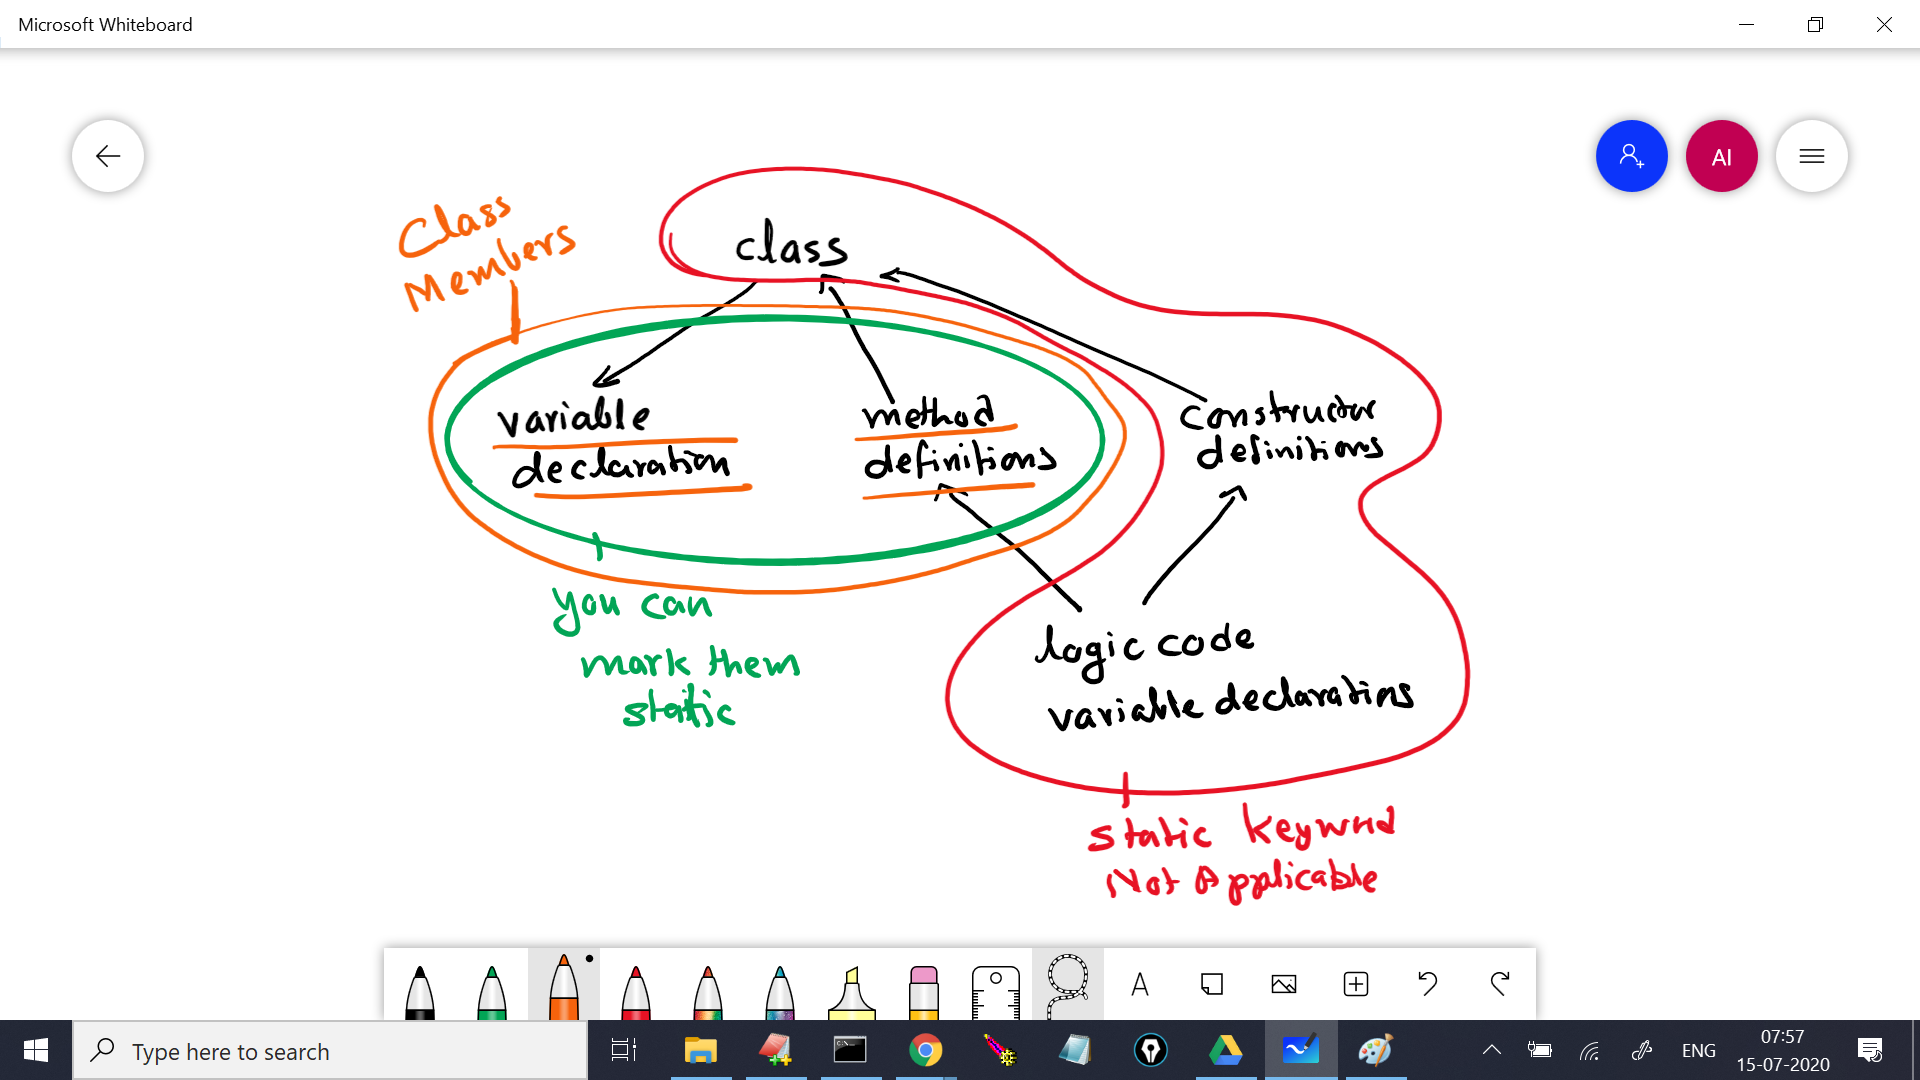 Microsoft Whiteboard
AI
Class
Members
class
variable
declaration
method
definitions
constructor
definitions
you can
mark them
static
logic code
variable declarations
static keyword
Not Applicable
A
Type here to search
ENG
07:57
15-07-2020